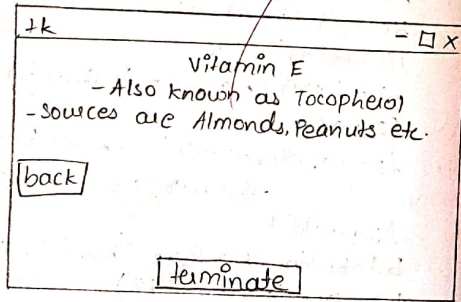 tk
- □ X
Vitamin E
- Also known as Tocopherol
- Sources are Almonds, Peanuts etc.
back
terminate